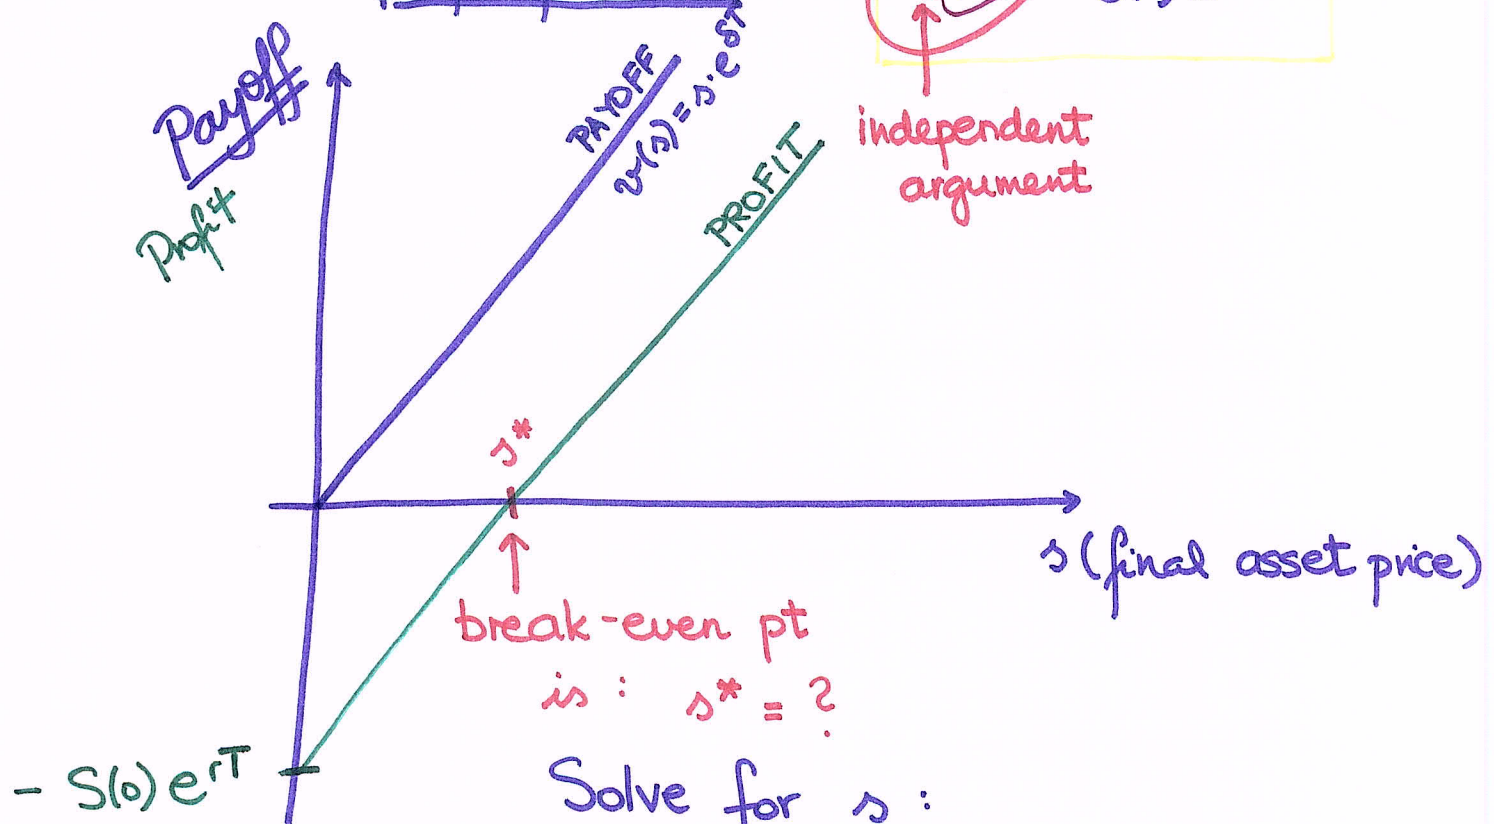 Payoff
Profit
PAYOFF
v(s)=s·e^δT
PROFIT
independent
argument
s*
s (final asset price)
break-even pt
is : s* = ?
- S(0)e^rT
Solve for s :